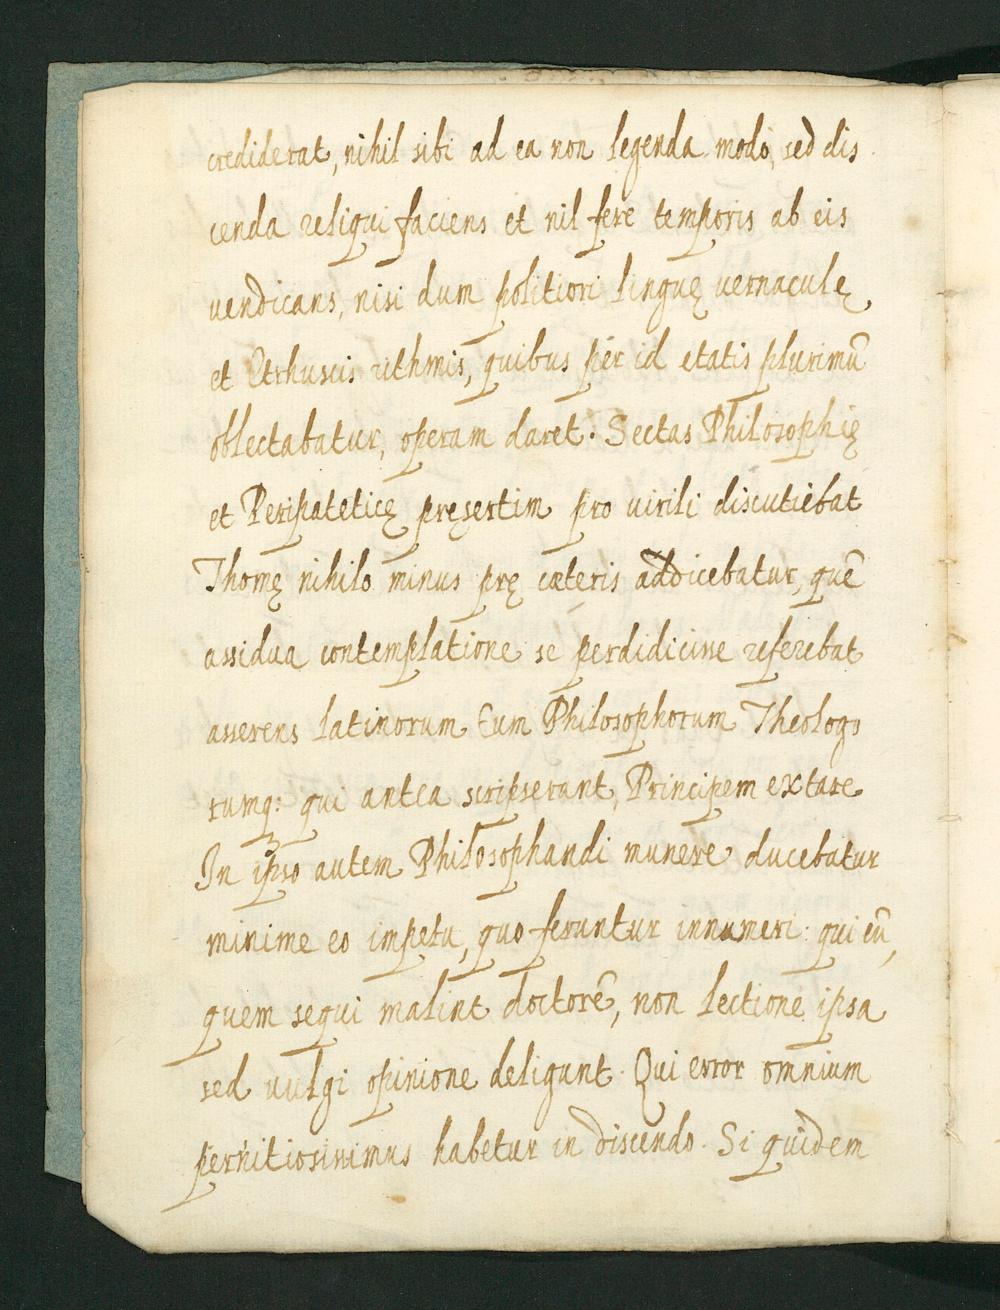 crediderat, nihil sibi ad ea non legenda modo, sed dis
cenda reliqui faciens et nil fere temporis ab eis
vendicans, nisi dum politiori linguę vernaculę
et Etrhuscis rithmis, quibus per id etatis plurimū
oblectabatur, operam daret. Sectas Philosophię
et Peripateticę pręsertim pro virili discutiebat
Thomę nihilo minus prę cæteris addicebatur, quē
assidua contemplatione se perdidicisse referebat
asserens latinorum Eum Philosophorum Theologo
rumq: qui antea scripserant, Principem extare
In ipso autem Philosophandi munere ducebatur
minime eo impetu, quo feruntur innumeri qui eū,
quem sequi malint doctorē, non lectione ipsa
sed vulgi opinione deligunt. Qui error omnium
pernitiosissimus habetur in discendo. Si quidem